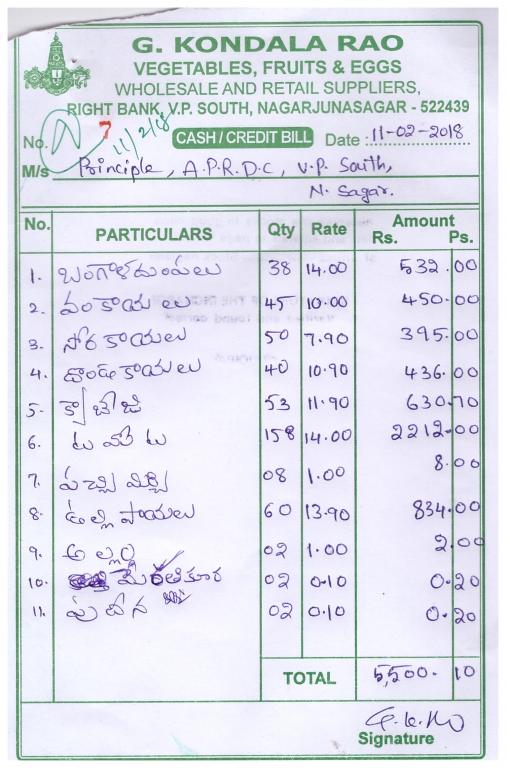 G. KONDALA RAO
VEGETABLES, FRUITS & EGGS
WHOLESALE AND RETAIL SUPPLIERS,
RIGHT BANK, V.P. SOUTH, NAGARJUNASAGAR - 522439
No. 7 11/2/18 CASH / CREDIT BILL Date : 11-02-2018
M/s Principle, A.P.R.D.C, V.P. South,
N. Sagar.
No. PARTICULARS Qty Rate Amount
Rs. Ps.
1. బంగాళదుంపలు 38 14.00 532.00
2. వంకాయలు 45 10.00 450.00
3. సోరకాయలు 50 7.90 395.00
4. దొండకాయలు 40 10.90 436.00
5. క్యాబేజి 53 11.90 630.70
6. టమోటు 158 14.00 2212.00
7. పచ్చిమిర్చి 08 1.00 8.00
8. ఉల్లిపాయలు 60 13.90 834.00
9. అల్లం 02 1.00 2.00
10. 02 0.10 0.20
11. పుదీన 02 0.10 0.20
TOTAL 5,500.10
Signature